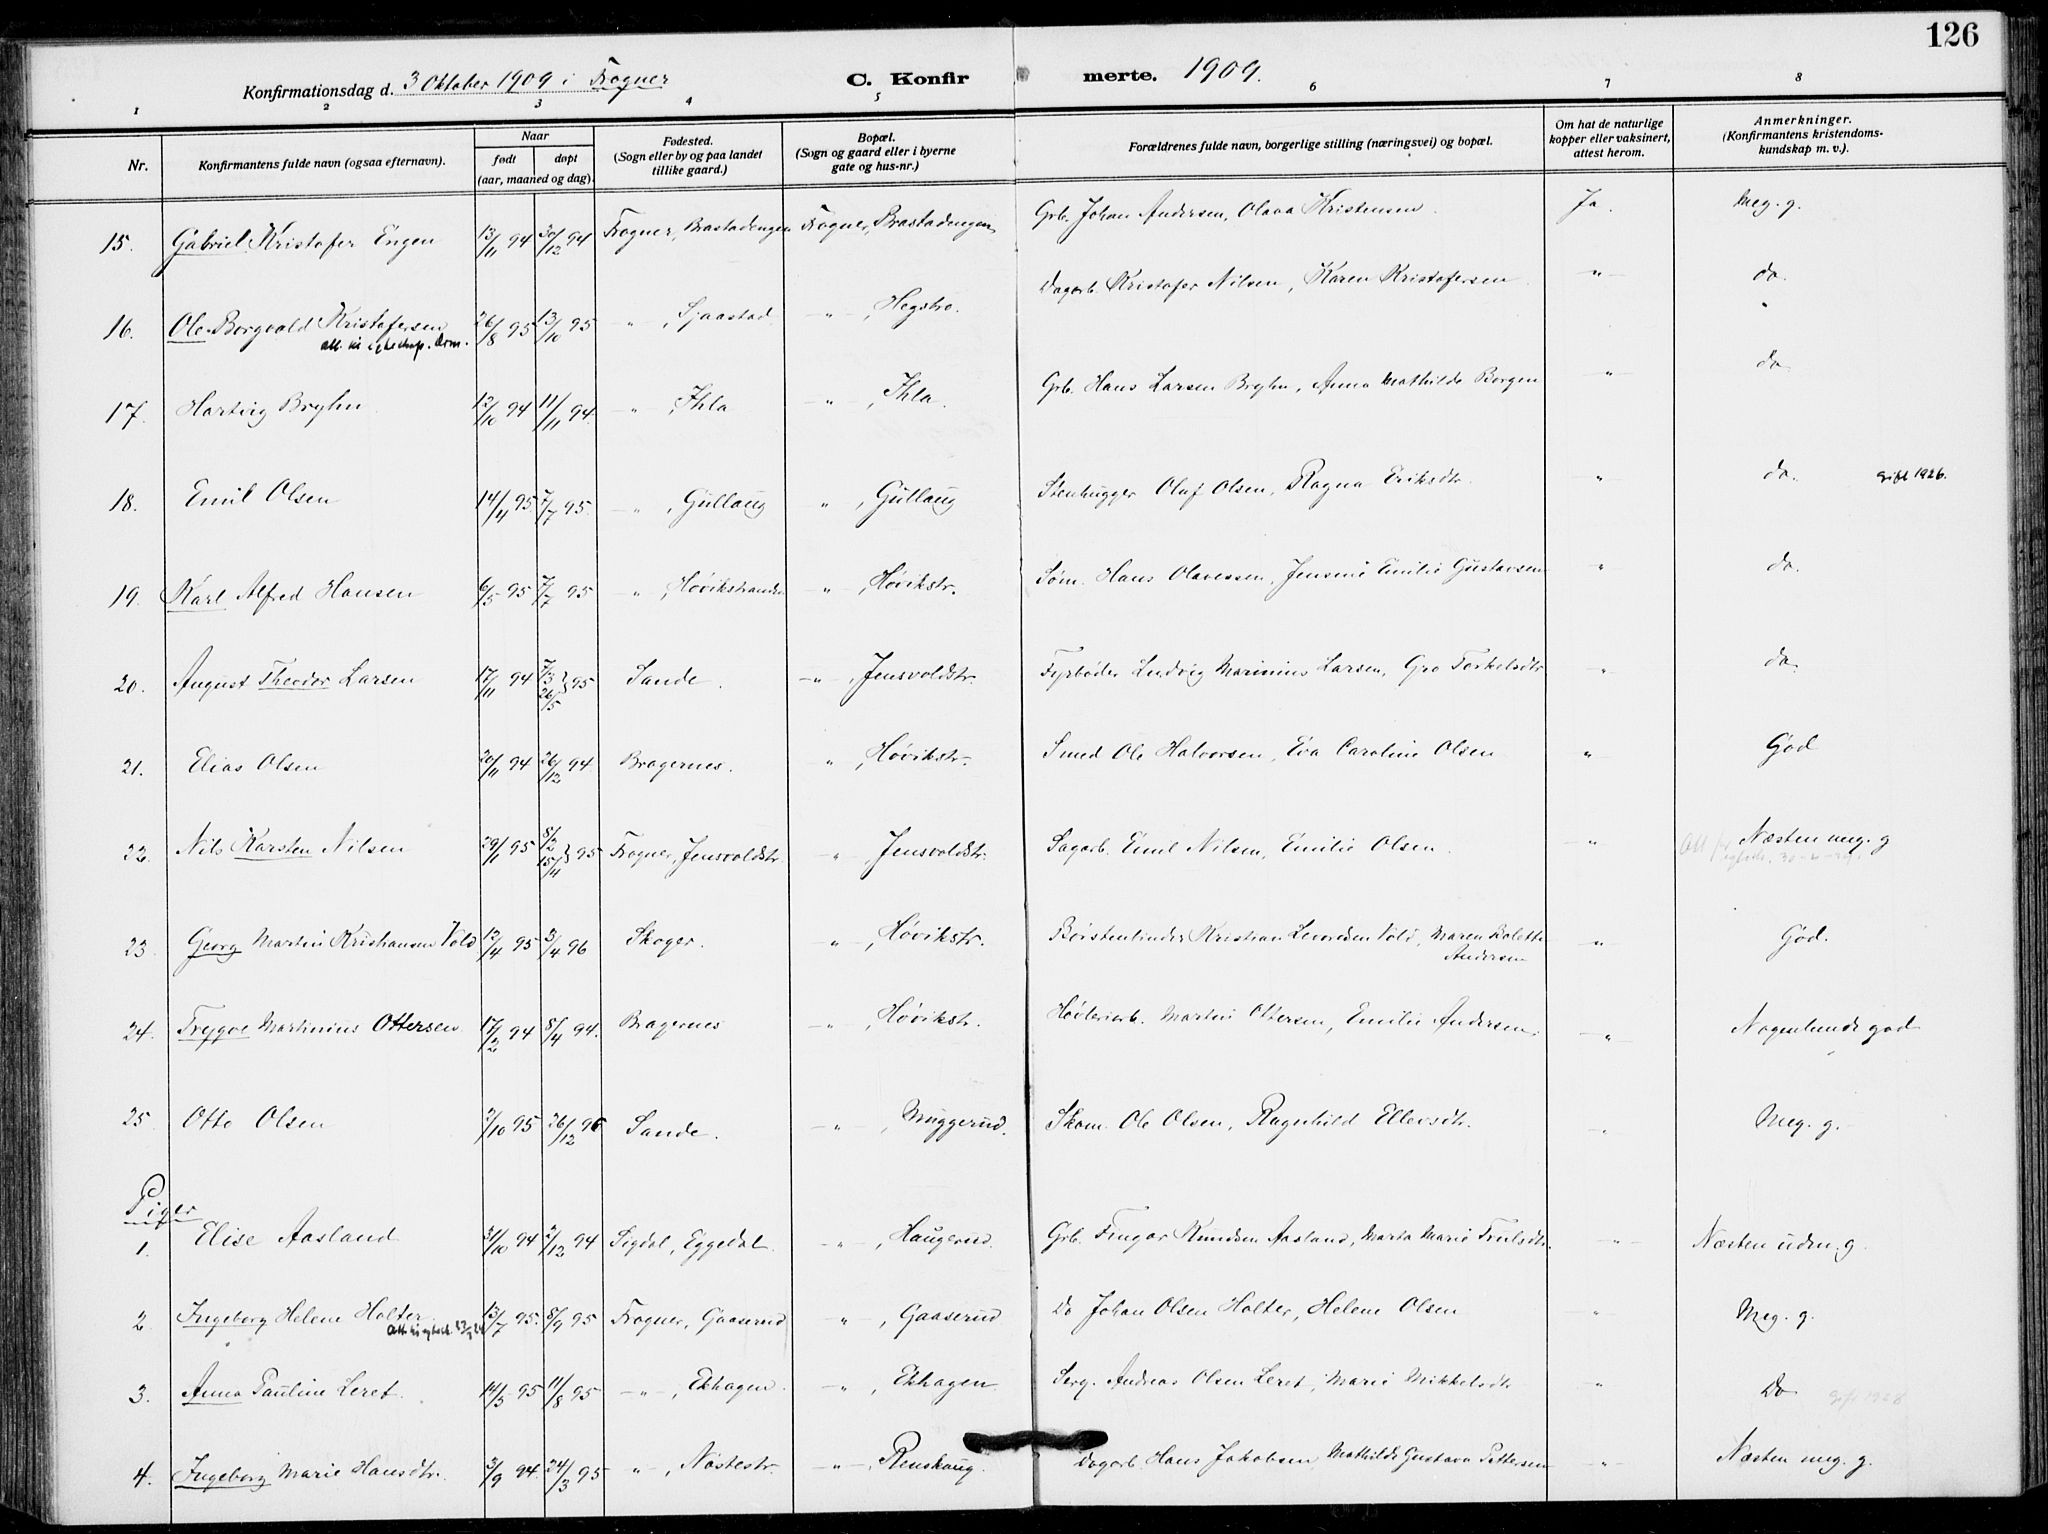 126
Konfirmationsdag d. 3 Oktober 1909 i Frogner C. Konfir merte. 1909.
1 2 3 4 5 6 7 8
Nr. Konfirmantens fulde navn (ogsaa efternavn). Naar født døpt (aar, maaned og dag). Fødested. (Sogn eller by og paa landet tillike gaard.) Bopæl. (Sogn og gaard eller i byerne gate og hus-nr.) Forældrenes fulde navn, borgerlige stilling (næringsvei) og bopæl. Om hat de naturlige kopper eller vaksinert, attest herom. Anmerkninger. (Konfirmantens kristendoms-kundskap m. v.).
15. Gabriel Kristofer Engen 13/11 94 30/12 94 Frogner, Brastadengen Frogner, Brastadengen Grb. Johan Andersen, Olava Kristensen. Ja. Meg. g.
16. Ole Borgvald Kristofersen 26/8 95 13/10 95 " , Sjaastad " , Hegstro. Dagarb. Kristofer Nilsen, Karen Kristofersen. " do.
17. Hartvig Bryhn 12/10 94 11/11 94. " , Ihla " , Ihla. Grb. Hans Larsen Bryhn, Anna Mathilde Borgen " do
18. Emil Olsen 14/4 95 7/7 95. " , Gullaug " , Gullaug Stenhugger Oluf Olsen, Ragna Eriksdtr. " do. gift 1926.
19. Karl Alfred Hansen 6/5 95 7/7 95 " , Høvikstranden " , Høvikstr. Søm. Hans Olavessen, Jensine Emilie Gustavsen " do.
20. August Theodor Larsen 17/11 94 7/3 26/5 } 95 Sande. " , Jensvoldstr. Fyrbøder Ludvig Marinius Larsen, Gro Torkelsdtr. " do
21. Elias Olsen 20/11 94 26/12 94. Bragernes. " , Høvikstr. Smed Ole Halvorsen, Eva Caroline Olsen " God
22. Nils Karsten Nilsen 29/1 95 8/2 15/4 } 95 Frogner, Jensvoldstr. " , Jensvoldstr. Sagarb. Emil Nilsen, Emilie Olsen. " Næsten meg. g
23. Georg Martin Kristiansen Vold 12/4 95 3/4 96 Skoger. " , Høvikstr. Børstenbinder Kristian Vold, Maren Bolette Andersen " God.
24. Trygve Martinius Ottersen 17/2 94 8/4 94. Bragernes " , Høvikstr. Høvleriarb. Martin Ottersen, Emilie Andersen. " Nogenlunde god
25. Otto Olsen 2/10 95 26/12 96 Sande. " , Muggerud. Skom. Ole Olsen, Ragnhild Ellevsdtr. " Meg. g.
Piger
1. Elise Aasland 31/10 94 2/12 94 Sigdal, Eggedal. " , Haugerud. Grb. Fingar Knudsen Aasland, Marta Marie Trulsdtr. " Næsten udm. g.
2. Ingeborg Helene Holter. 13/7 95. 8/9 95 Frogner, Gaaserud " , Gaaserud Do Johan Olsen Holter, Helene Olsen " Meg. g.
3. Anna Pauline Leret. 14/5 95 11/8 95 " , Ekhagen. " , Ekhagen Serg. Andreas Olsen Leret, Marie Mikkelsdtr " Do gift 1928
4. Ingeborg Marie Hansdtr. 3/9 94. 24/3 95 " , Nøstestr. " , Renskaug. Dagarb Hans Jakobsen, Mathilde Gustava Pettersen " Næsten meg. g.